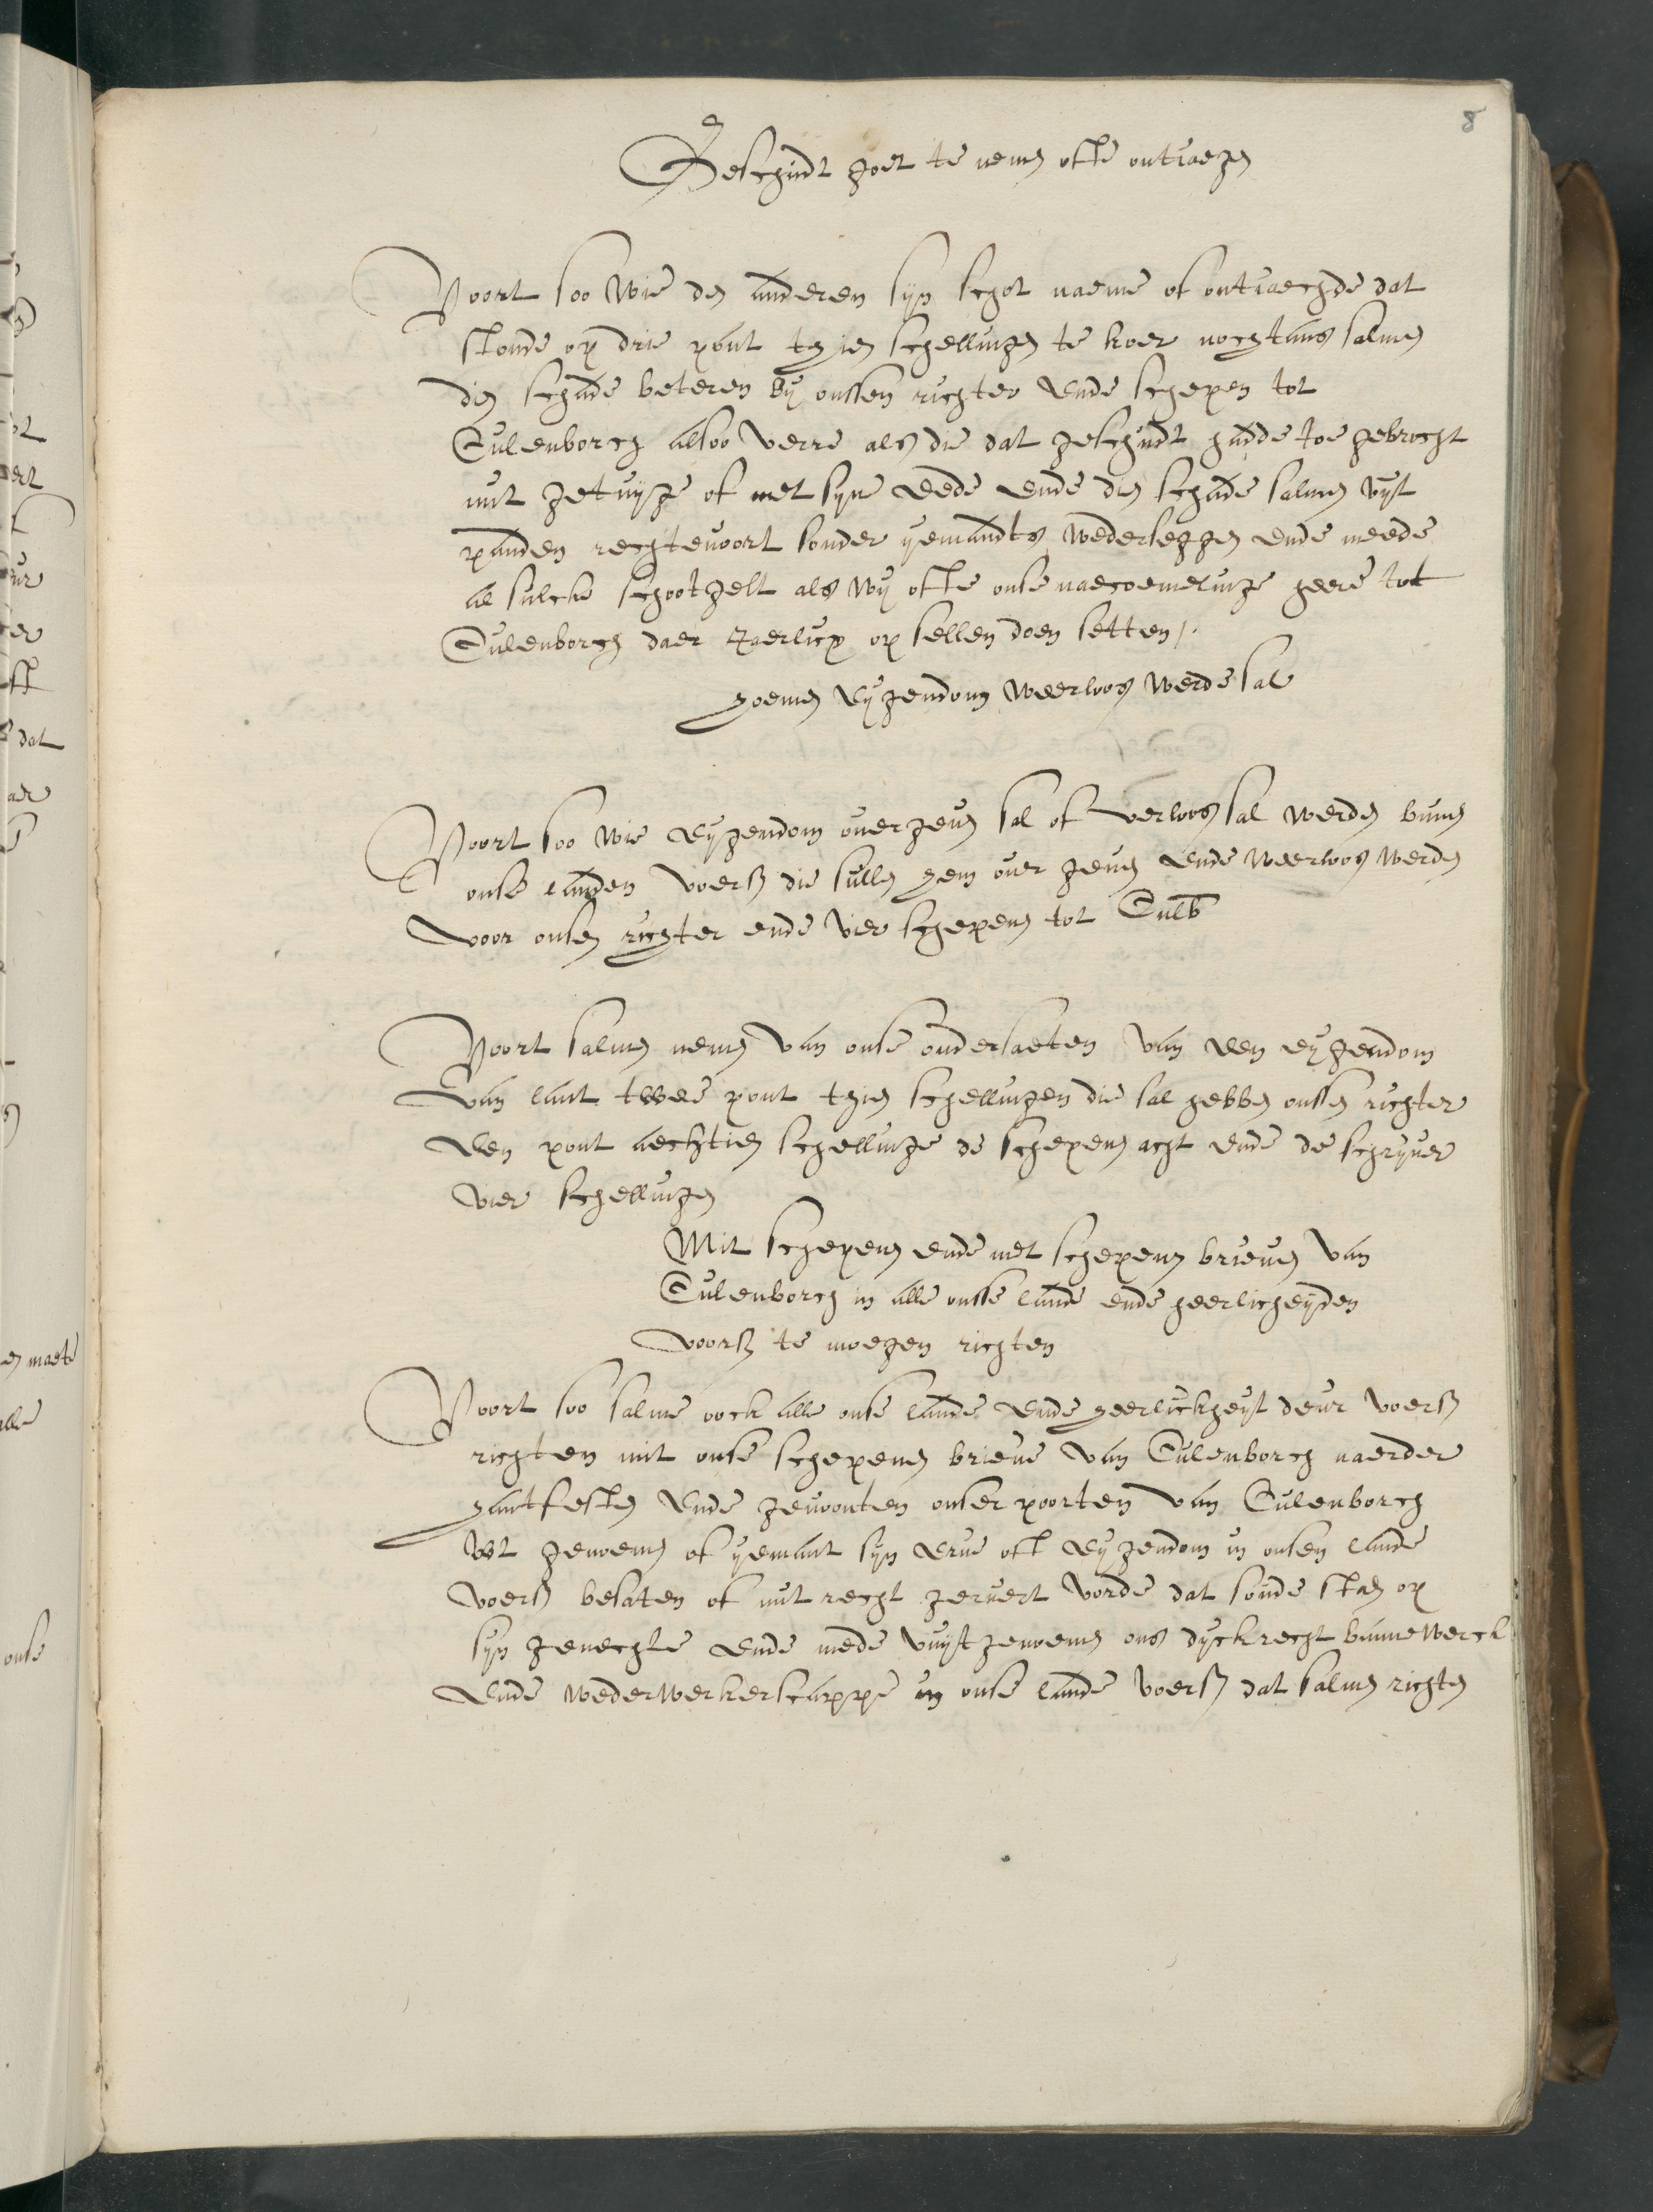 8
Beschudt goet te nemen ofte ontiaegen
Voort soo wie den anderen sijn schot naeme of ontiaechde dat
stonde op drie pont thien schellingen te koer nochtans salmen
dien schade beteren bij onssen richter ende schepen tot
Culenborch alsoo verre als die dat geschudt hadde toe gebrocht
mit getuijge of met sijne eede ende dien schade salmen uijt
panden rechtevoort sonder ijemandts wederseggen ende meede
al sulcke schootgelt als wij ofte onse naecoemelinge heere tot
Culenborch daer Jaerlicx op sellen doen setten /.
hoemen eijgendom weerloos werde sal
Voort soo wie eijgendom overgeven sal of verloos sal werden binnen
onse landen voers die sullen hem over geven ende weerloos werden
voor onsen richter ende vier schepenen tot Culb
Voort salmen nemen van onse ondersaeten van een eijgendom
van lant twee pont thien schellingen die sal hebben onssen richter
een pont aechtien schellinge de schepenen acht ende de schrijver
vier schellingen
Mit schepenen ende met schepenen brieven van
Culenborch in alle onsse lande ende heerlicheijden
voors te moegen richten
Voort soo salme oock alle onse lande ende heerlickheijt deur voers
richten mit onse schepenen brieve van Culenborch naerder
hantfesten ende gewoonten onser poorten van Culenborch
wt genoemen of ijemant sijn erve oft eijgendom in onsen lande
voers besaten of mit recht gervert worde dat soude staen op
sijn gerechte ende mede vuijt genoemen ons dijckrecht binnewerck
ende wederwerkerscappe in onse lande voers dat salmen richten